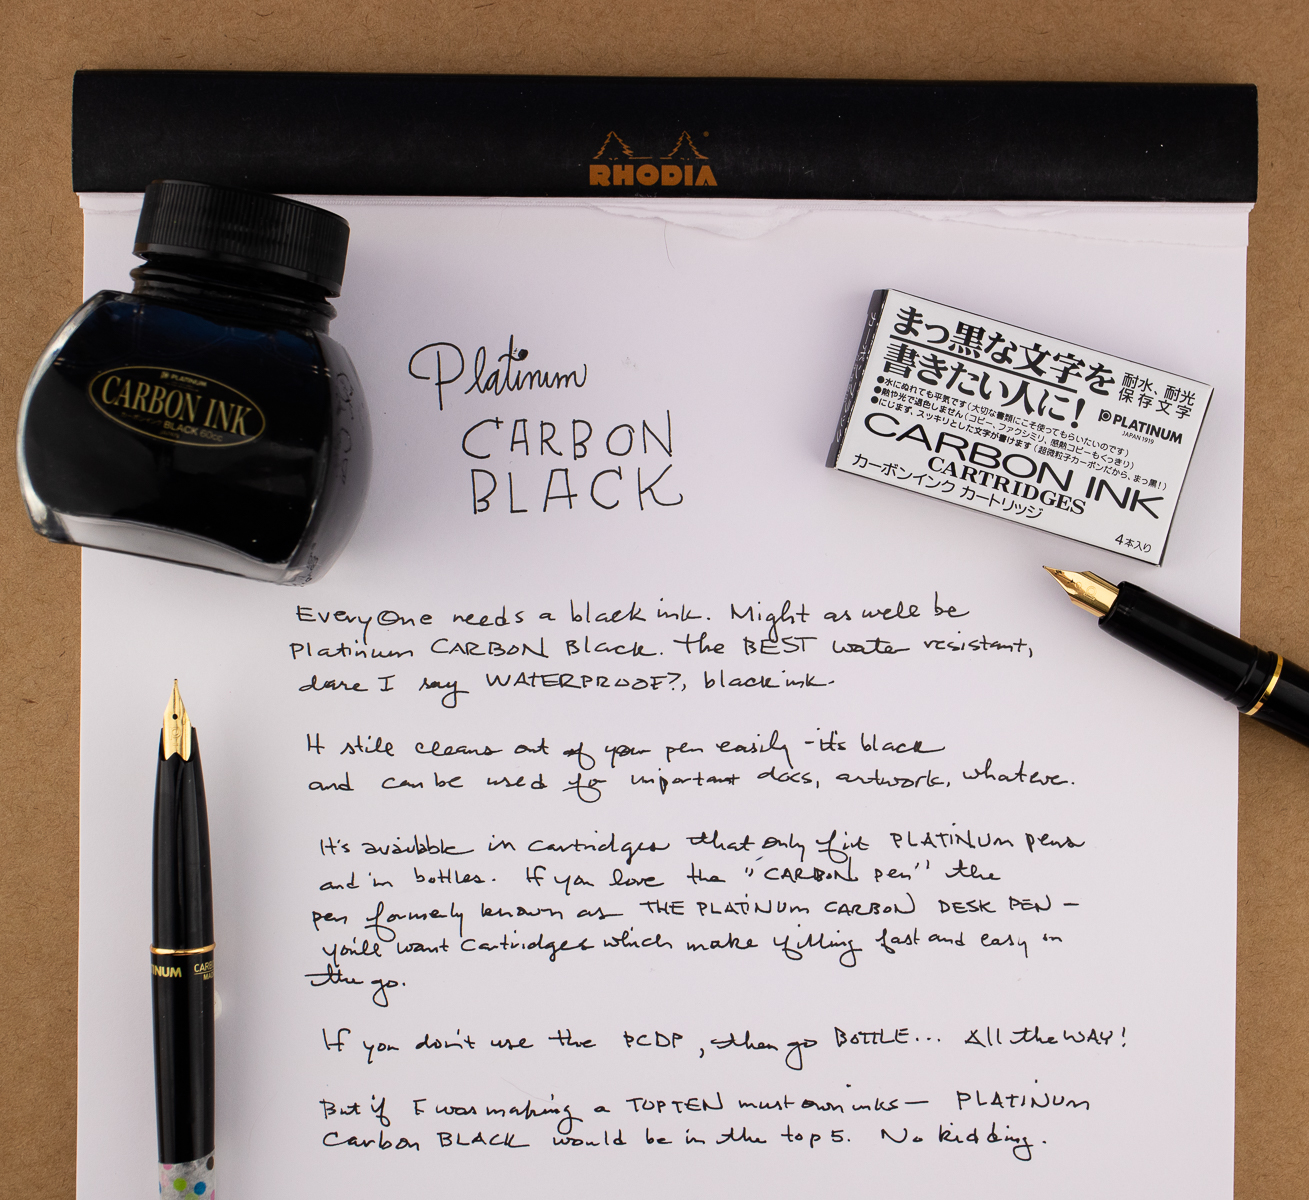 RHODIA
PLATINUM
CARBON INK
カーボンインク BLACK 60cc
まっ黒な文字を
書きたい人に!
耐水、耐光
保存文字
PLATINUM
JAPAN 1919
●水にぬれても平気です(大切な書類にこそ使ってもらいたいのです)
●熱や光で退色しません(コピー、ファクシミリ、感熱コピーもくっきり)
●にじまず、スッキリとした文字が書けます(超微粒子カーボンだから、まっ黒!)
CARBON INK
CARTRIDGES
カーボンインク カートリッジ
4本入り
Platinum
CARBON
BLACK
EveryOne needs a black ink. Might as well be
Platinum CARBON Black. The BEST water resistant,
dare I say WATERPROOF?, black ink.
It still cleans out of your pen easily - it's black
and can be used for important docs, artwork, whatever.
It's available in cartridges that only fit PLATINUM pens
and in bottles. If you love the "CARBON pen" the
pen formerly known as THE PLATINUM CARBON DESK PEN -
you'll want cartridges which make filling fast and easy on
the go.
If you don't use the PCDP, then go BOTTLE... All the WAY!
But if I was making a TOP TEN must own inks — PLATINUM
Carbon BLACK would be in the top 5. No kidding.
INUM CARB